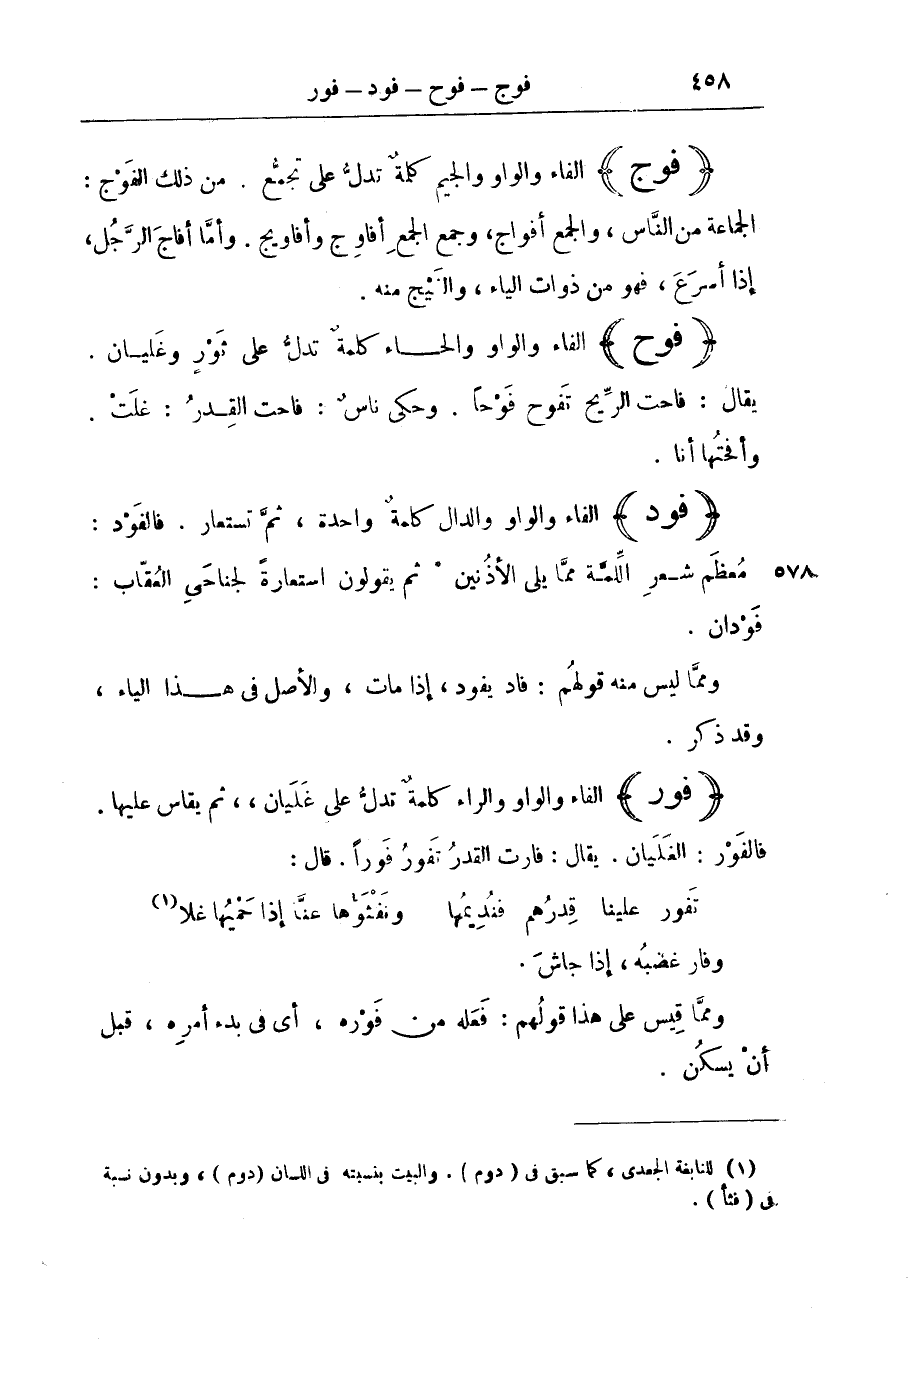 ٤٥٨ فوج – فوح – فود – فور
﴿ فوج ﴾ الفاء والواو والجيم كلمةٌ تدلُّ على تجمُّع . من ذلك الفَوْج :
الجماعة من النَّاس ، والجمع أفواج، وجمع الجمع أفاوِج وأفاويج . وأمَّا أفاجَ الرَّجُل،
إذا أسرَعَ ، فهو من ذوات الياء ، والفَيْج منه .
﴿ فوح ﴾ الفاء والواو والحاء كلمةٌ تدلُّ على ثَوْرٍ وغَليان .
يقال : فاحت الرِّيح تَفوح فَوْحاً . وحكى ناسٌ : فاحت القِدرُ : غلَتْ .
وأفحتُها أنا .
﴿ فود ﴾ الفاء والواو والدال كلمةٌ واحدة ، ثمَّ تستعار . فالفَوْد :
٥٧٨ مُعظَم شعرِ اللِّمَّة ممَّا يلى الأذُنين ٠ ثم يقولون استعارةً لجناحَىِ العُقَاب :
فَوْدان .
وممَّا ليس منه قولهُم : فاد يفود ، إذا مات ، والأصل فى هذا الياء ،
وقد ذكر .
﴿ فور ﴾ الفاء والواو والراء كلمةٌ تدلُّ على غَلَيان ، ، ثم يقاس عليها .
فالفَوْر : الغَلَيان . يقال : فارت القدرُ تَفورُ فَوراً . قال :
تَفور علينا قِدرُهم فنُدِيمُها ونَفْثَؤها عنَّا إذا حَمْيُها غلا(١)
وفار غضبُه ، إذا جاشَ .
وممَّا قِيس على هذا قولُهم : فَعَله من فَوْره ، أى فى بدء أمرِه ، قبل
أنْ يسكُن .
(١) للنابغة الجعدى ، كما سبق فى ( دوم ) . والبيت بنسبته فى اللسان (دوم ) ، وبدون نسبة
فى ( فثأ ) .